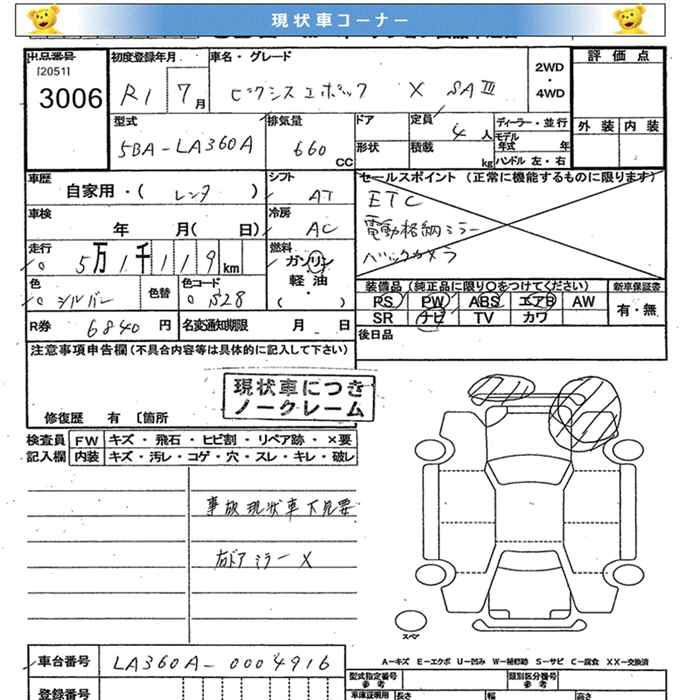 現状車コーナー
出品番号
120511
3006
初度登録年月
R1 7月
車名・グレード
ピクシスエポック X SAⅢ
2WD
・
4WD
評価点
型式
5BA-LA360A
排気量
660
CC
ドア
形状
定員
4人
積載
kg
ディーラー・並行
モデル
年式 年
ハンドル 左・右
外装 内装
車歴
自家用・( レンタ )
シフト
AT
セールスポイント (正常に機能するものに限ります)
ETC
電動格納ミラー
バックカメラ
車検
年 月( 日)
冷房
AC
走行
5万1千119km
燃料
ガソリン
軽油・
色
シルバー
色替
色コード
S28
装備品 (純正品に限り○をつけてください)
PS PW ABS エアB AW
SR ナビ TV カワ
新車保証書
有・無
R券 6840円
名変通知期限 月 日
後日品
注意事項申告欄(不具合内容等は具体的に記入して下さい)
現状車につき
ノークレーム
修復歴 有 〔箇所
検査員
記入欄
FW キズ・飛石・ヒビ割・リペア跡・×要
内装 キズ・汚レ・コゲ・穴・スレ・キレ・破レ
事故現状車下見要
右ドアミラーX
スペア
車台番号 LA360A-0004916
A-キズ E-エクボ U-凹み W-補修跡 S-サビ C-腐食 XX-交換済
登録番号
型式指定番号
参考
類別区分番号
参考
車庫証明用 長さ 幅 高さ